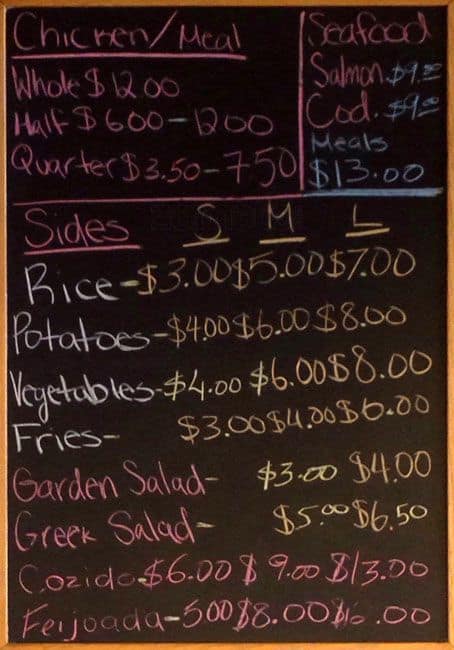 Chicken/Meal
Whole $12 00
Half $6 00 - 12 00
Quarter $3.50 - 7 50
Seafood
Salmon. $9.00
Cod. $9.00
Meals
$13.00
Sides S M L
Rice - $3.00 $5.00 $7.00
Potatoes - $4.00 $6.00 $8.00
Vegetables - $4.00 $6.00 $8.00
Fries - $3.00 $4.00 $6.00
Garden Salad - $3.00 $4.00
Greek Salad - $5.00 $6.50
Cozido - $6.00 $9.00 $13.00
Feijoada - 500 $8.00